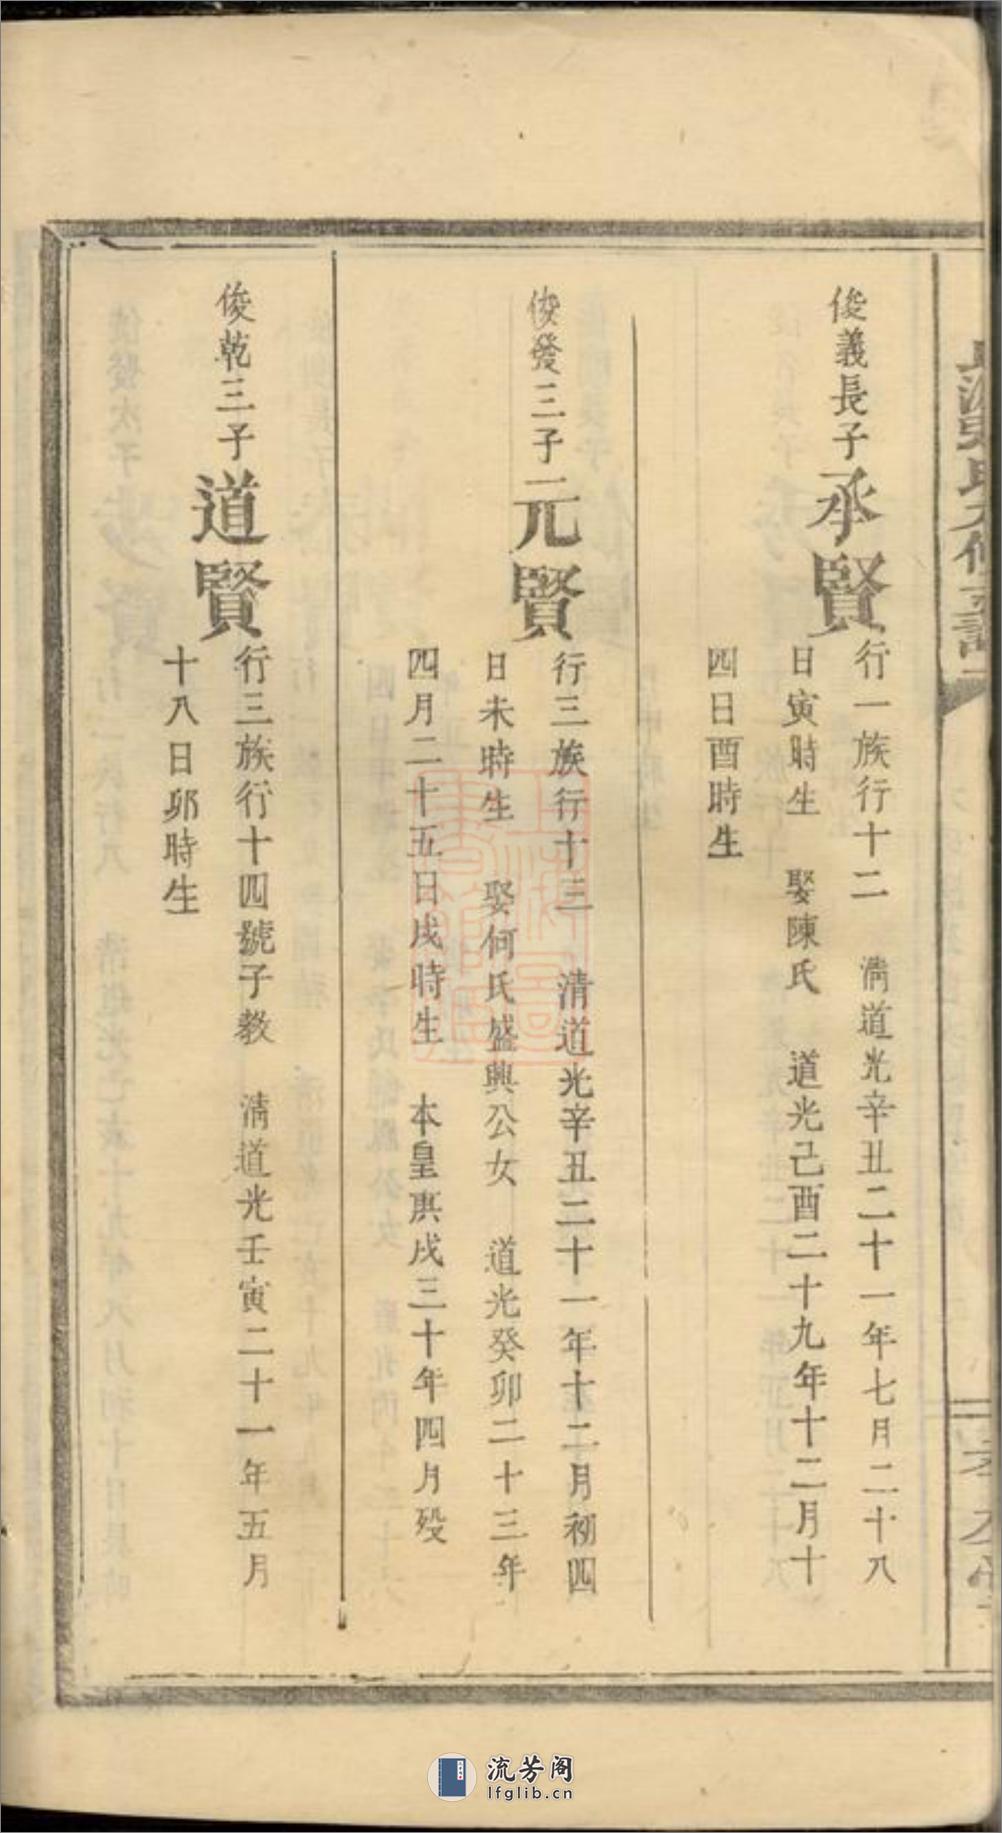 俊義長子承賢
行一族行十二　清道光辛丑二十一年七月二十八
日寅時生　娶陳氏　道光己酉二十九年十二月十
四日酉時生
俊發三子元賢
行三族行十三　清道光辛丑二十一年十二月初四
日未時生　娶何氏盛興公女　道光癸卯二十三年
四月二十五日戌時生　本皇庚戌三十年四月歿
俊乾三子道賢
行三族行十四號子教　清道光壬寅二十一年五月
十八日卯時生
流芳阁
lfglib.cn